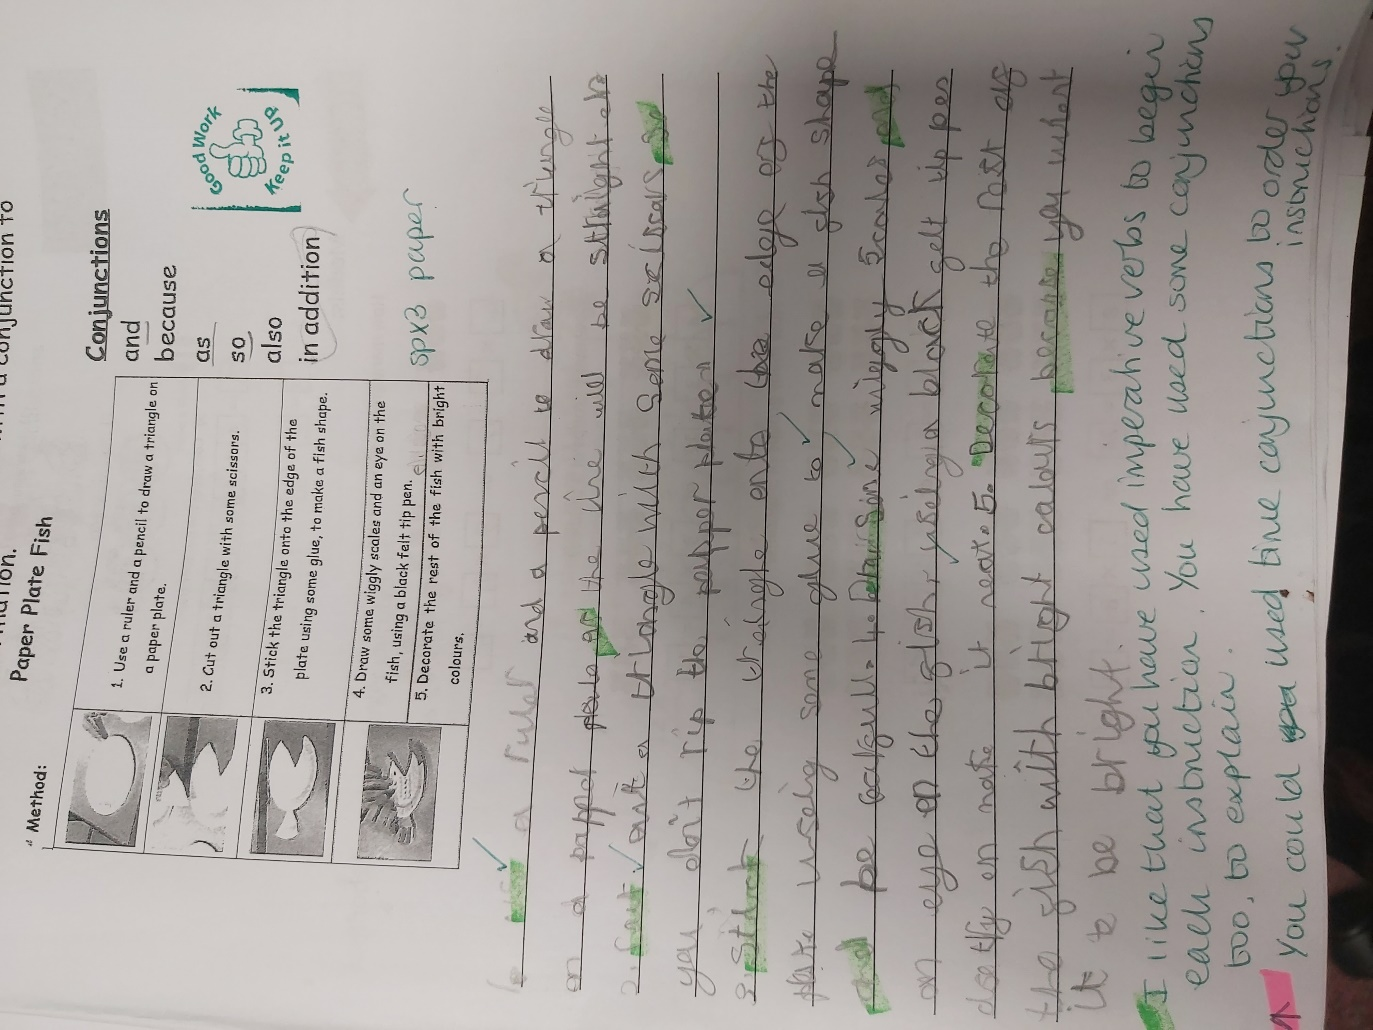 Paper Plate Fish
Method:
1. Use a ruler and a pencil to draw a triangle on
a paper plate.
2. Cut out a triangle with some scissors.
3. Stick the triangle onto the edge of the
plate using some glue, to make a fish shape.
4. Draw some wiggly scales and an eye on the
fish, using a black felt tip pen.
5. Decorate the rest of the fish with bright
colours.
Conjunctions
and
because
as
so
also
in addition
Good Work
Keep it up
spx3 paper
a ruler and a pencil to draw a triangle
on a papper the line will be straight
out a triangle with some scissors so
you don't rip the papper plate
3. Stick the triangle onto the edge of the
plate using some glue to make a fish shape
and be carfull. 4. some wiggly scales and
an eye on the fish useing a black felt tip pen
make it neat. 5. Decorate the rest of
the fish with bright colours because you want
it to be bright.
I like that you have used imperative verbs to begin
each instruction. You have used some conjunctions
too, to explain.
You could used time conjunctions to order your
instructions.